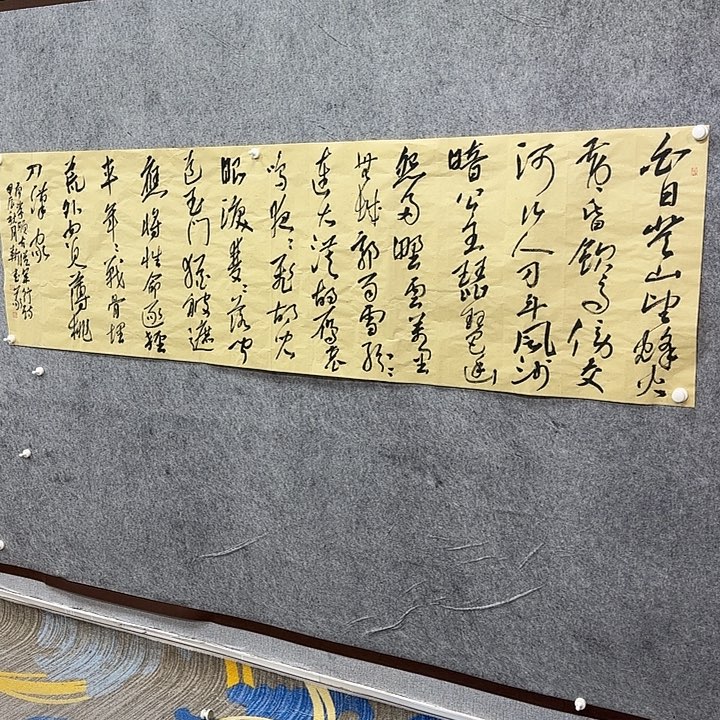 白日登山望烽火
黄昏飲馬傍交
河行人刁斗風沙
暗公主琵琶幽
怨多野雲萬里
無城郭雨雪紛〻
連大漠胡雁哀
鳴夜〻飛胡兒
眼淚雙〻落聞
道玉門猶被遮
應將性命逐輕
車年〻戰骨埋
荒外空見蒲桃
入漢家
李頎古從軍行詩
甲辰秋月